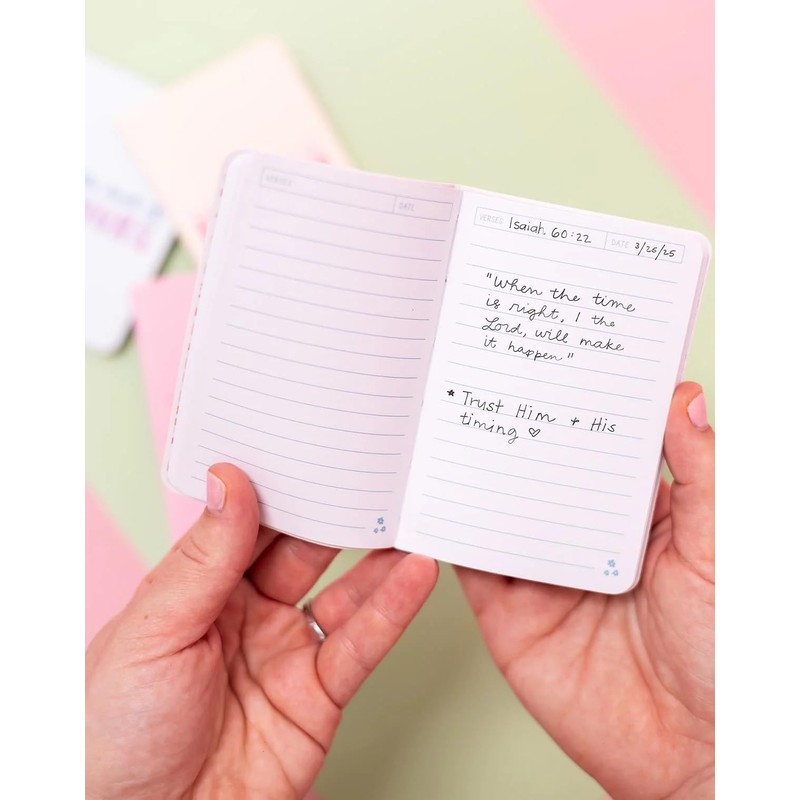 VERSES
DATE
VERSES Isaiah 60:22 DATE 3/26/25
"When the time
is right, I the
Lord, will make
it happen"
* Trust Him + His
timing ♡